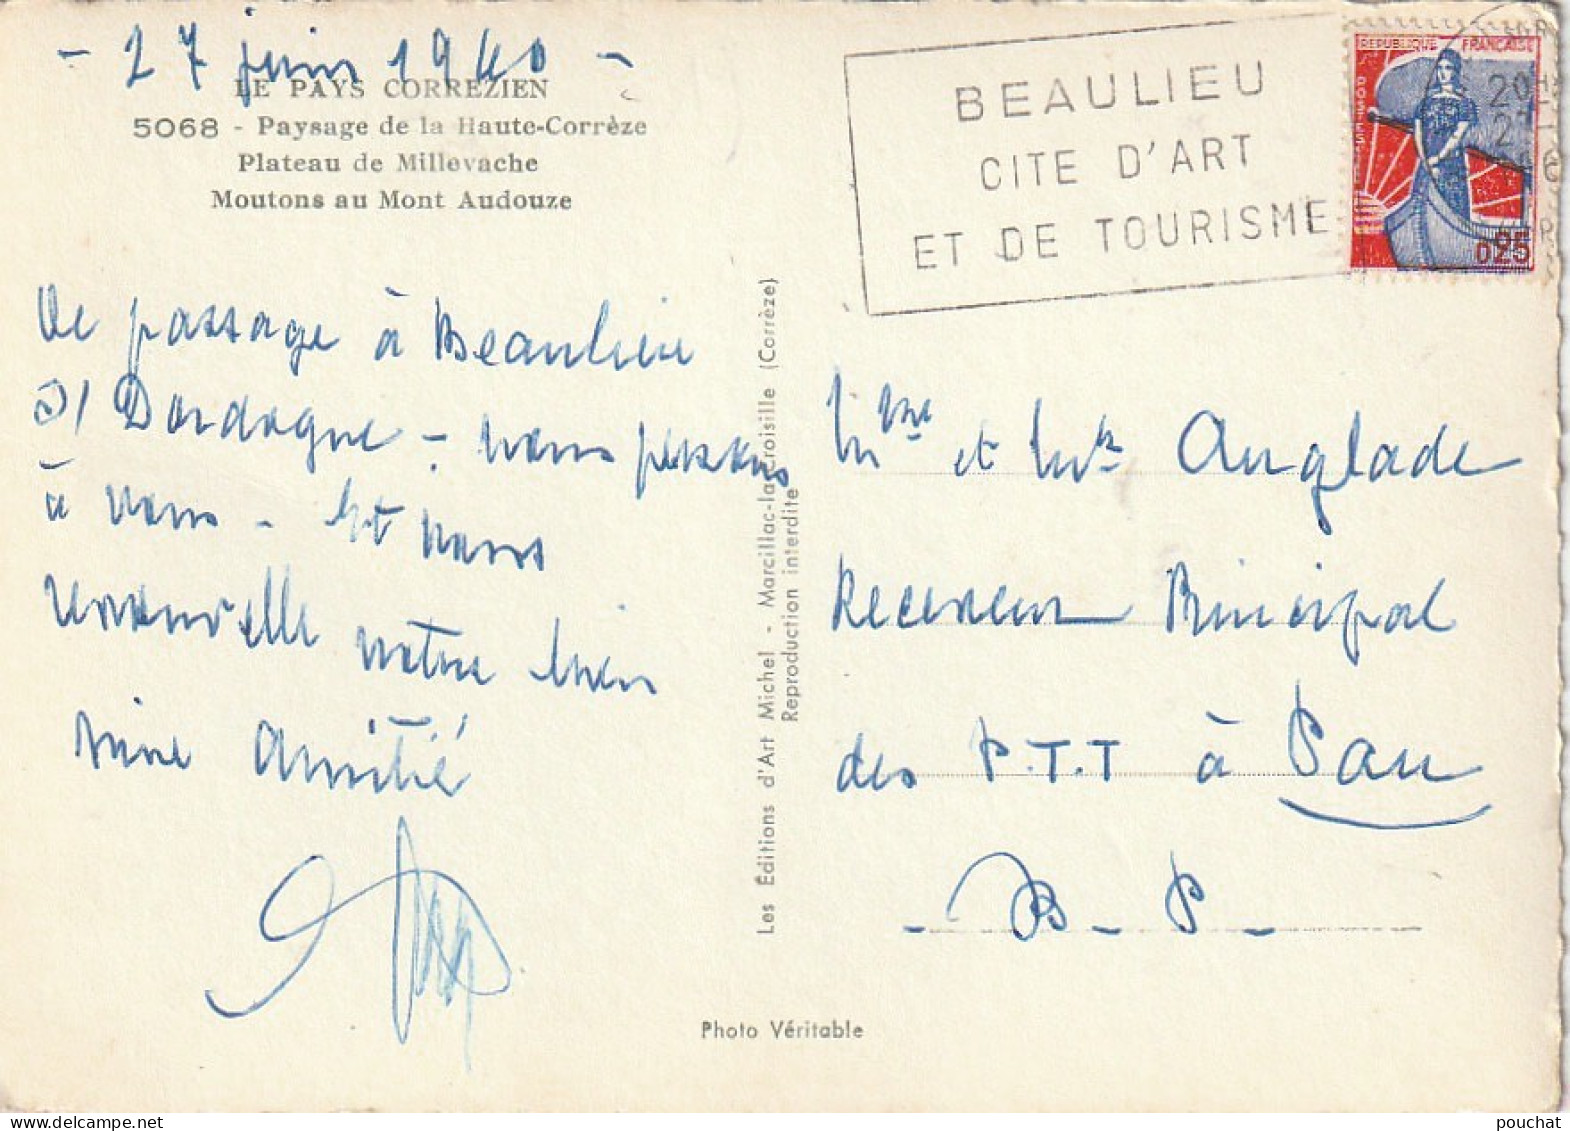 - 27 juin 1960 -
LE PAYS CORREZIEN
5068 - Paysage de la Haute-Corrèze
Plateau de Millevache
Moutons au Mont Audouze
De passage à Beaulieu
s/ Dordogne - nous pensons
à vous - Et vous
renouvelle notre bien
vive amitié
Les Éditions d'Art Michel - Marcillac-la-Croisille (Corrèze)
Reproduction interdite
Photo Véritable
BEAULIEU
CITE D'ART
ET DE TOURISME
REPUBLIQUE FRANCAISE
POSTES
0,25
20H
27
Mme et Mr Anglade
Receveur Principal
des P.T.T à Pau
- B - P -
pouchat